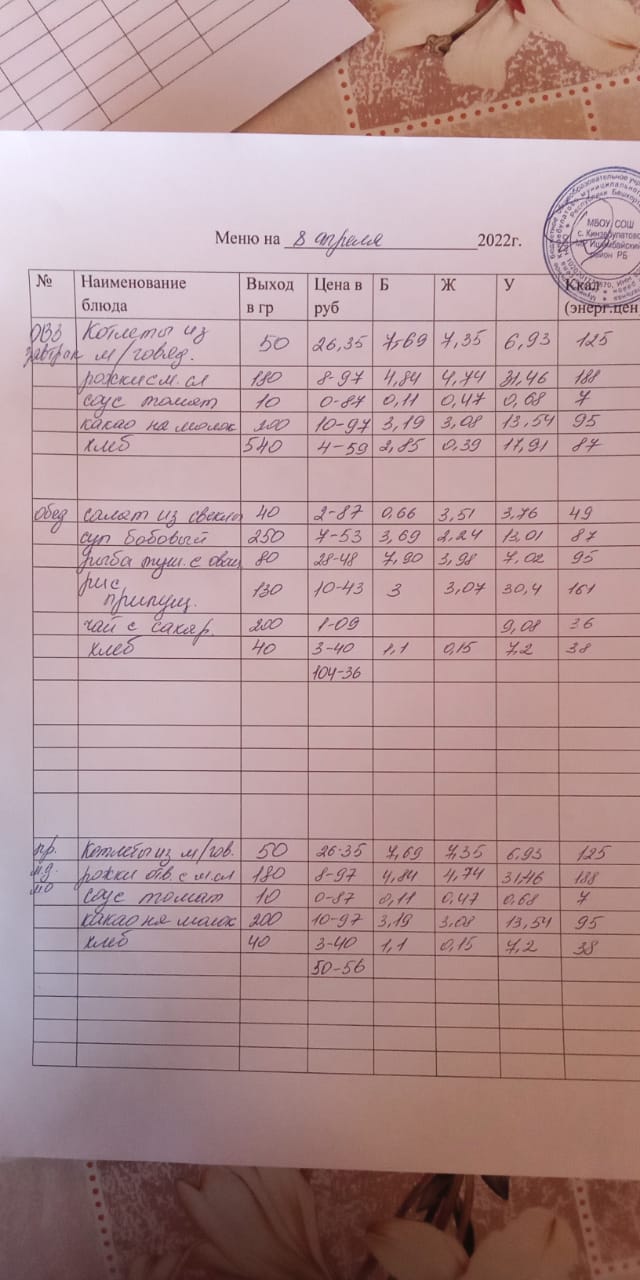 МБОУ СОШ
с. Кинзебулатово
МР Ишимбайский
район РБ
Меню на 8 апреля 2022г.
№ Наименование блюда Выход в гр Цена в руб Б Ж У Ккал (энерг.цен
ОВЗ завтрак Котлеты из м/говяд. 50 26,35 7,69 7,35 6,93 125
рожки с м.сл 180 8-97 4,84 4,74 31,46 188
соус томат 10 0-87 0,11 0,47 0,68 7
какао на молок 200 10-97 3,19 3,08 13,54 95
хлеб 540 4-59 2,85 0,39 17,91 87
обед салат из свеклы 40 2-87 0,66 3,51 3,76 49
суп бобовый 250 7-53 3,69 2,24 13,01 87
рыба туш. с овощ 80 28-48 7,90 3,98 7,02 95
рис припущ. 130 10-43 3 3,07 30,4 161
чай с сахар. 200 1-09 9,08 36
хлеб 40 3-40 1,1 0,15 7,2 38
104-36
пр. Котлеты из м/гов. 50 26-35 7,69 7,35 6,93 125
м.д. рожки отв. с м.сл 180 8-97 4,84 4,74 31,46 188
мо соус томат 10 0-87 0,11 0,47 0,68 7
какао на молок 200 10-97 3,19 3,08 13,54 95
хлеб 40 3-40 1,1 0,15 7,2 38
50-56